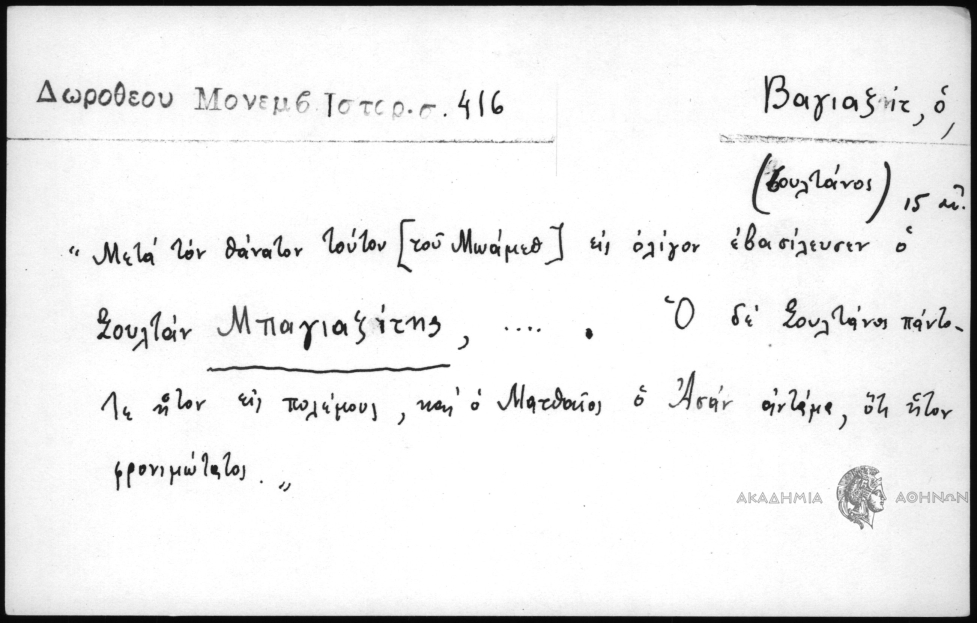 Δωροθεου Μονεμβ Ιστορ.σ. 416
Βαγιαζὶτ, ὁ,
(Σουλτάνος) 15 αἰ.
“ Μετὰ τὸν θάνατον τοῦτον [τοῦ Μωάμεθ] εἰς ὀλίγον ἐβασίλευσεν ὁ
Σουλτὰν Μπαγιαζίτης, .... . Ὁ δὲ Σουλτάνος πάντο-
τε ἦτον εἰς πολέμους, καὶ ὁ Ματθαῖος ὁ Ἀσὰν ἀντάμα, ὅτι ἦτον
φρονιμώτατος. „
ΑΚΑΔΗΜΙΑ ΑΘΗΝΩΝ